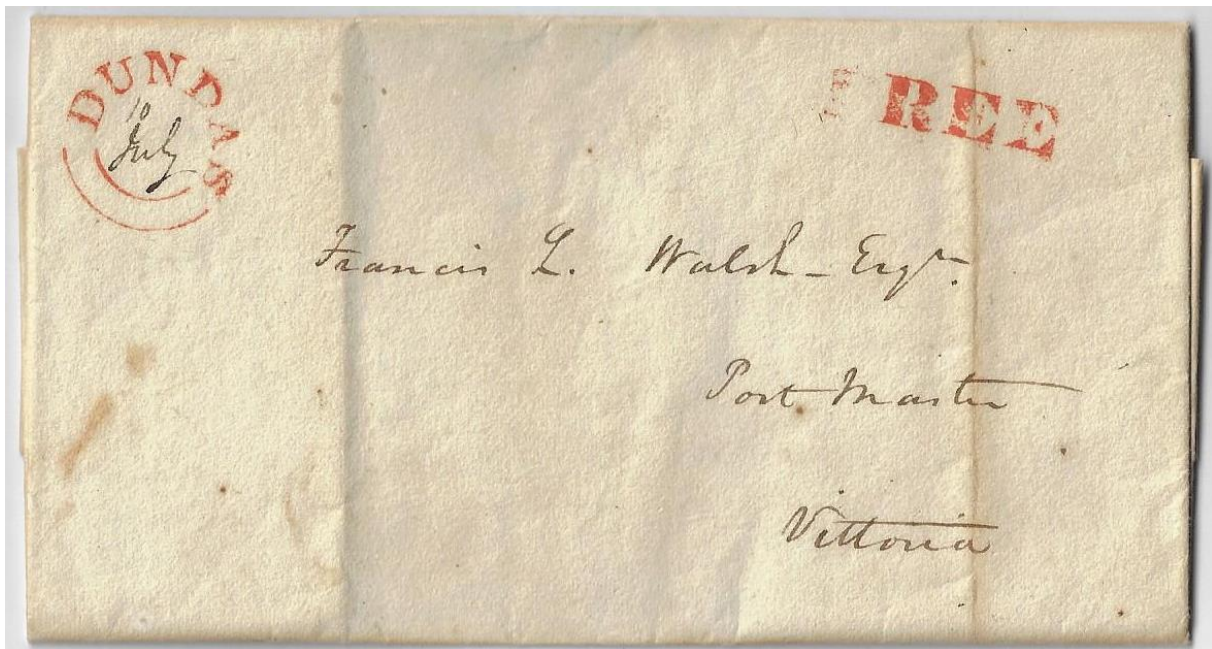 DUNDAS
10
July
FREE
Francis L. Walsh - Esqre
Post Master
Vittoria